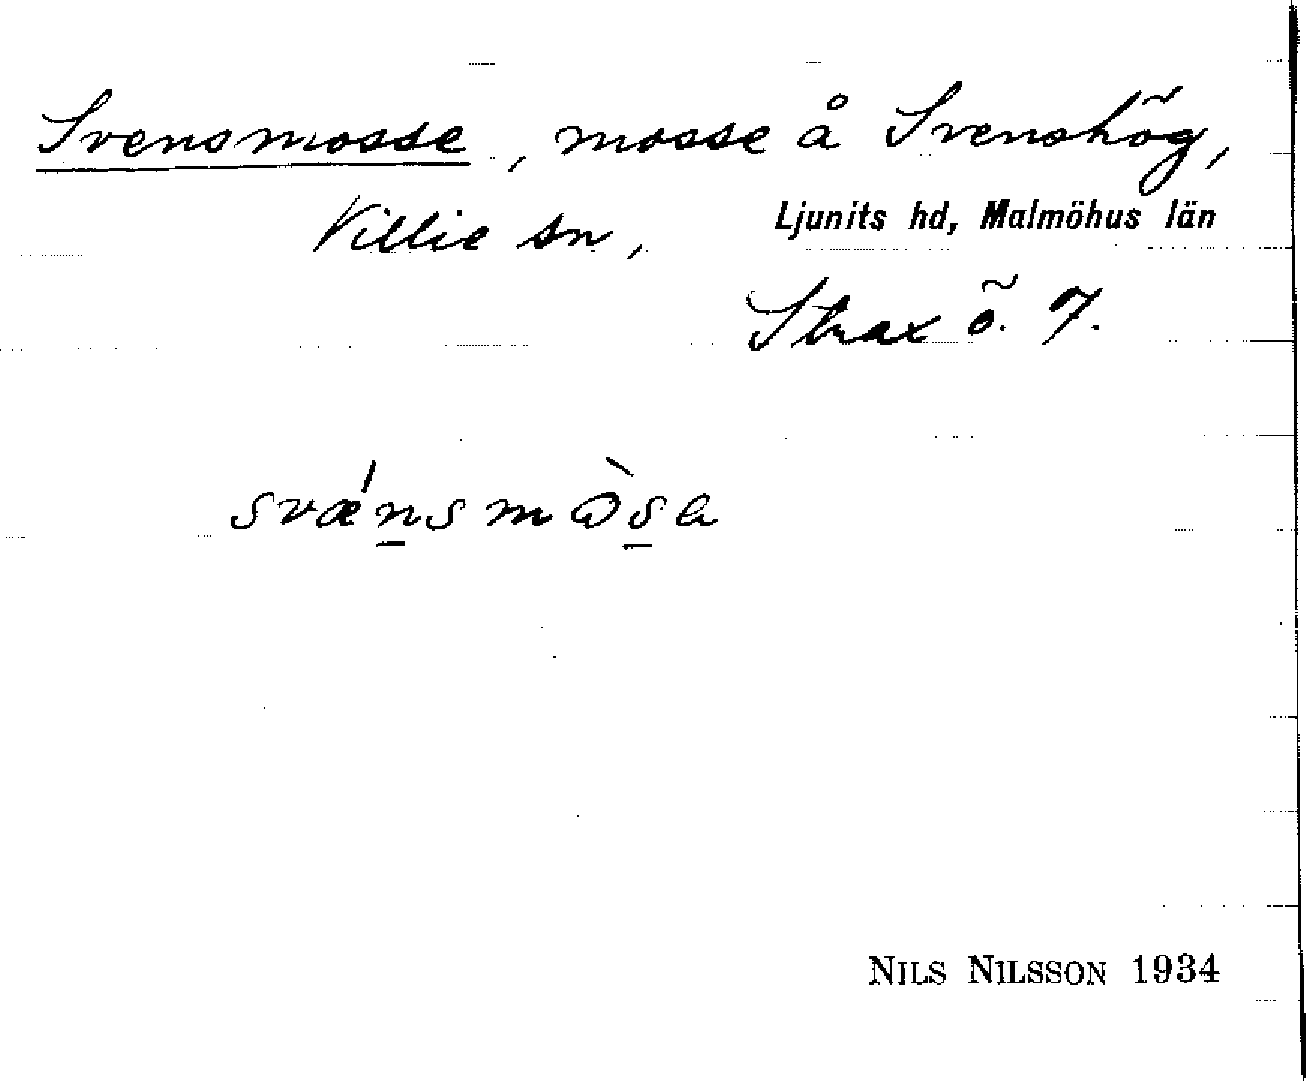 Svensmosse, mosse å Svenshög,
Villie sn, Ljunits hd, Malmöhus län
Strax ö. 7.
svǽn̲smɔ̀s̲a
NILS NILSSON 1934